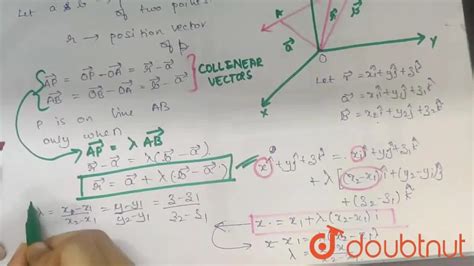 Let a & b of two points
r → position vector
of p
AP = OP - OA = r - a
AB = OB - OA = b - a
COLLINEAR
VECTORS
P is on line AB
only when
AP = λ AB
r - a = λ(b - a)
r = a + λ(b - a)
λ = x - x₁ / x₂ - x₁ = y - y₁ / y₂ - y₁ = 3 - 3₁ / 3₂ - 3₁
A
P
a
r
b
O
Y
X
Let r = xi + yj + 3k
a = x₁i + y₁j + 3₁k
b = x₂i + y₂j + 3₂k
xi + yj + 3k = x₁i + y₁j + 3₁k
+ λ[(x₂-x₁)i + (y₂-y₁)j
+ (3₂-3₁)k
x = x₁ + λ(x₂-x₁)
x - x₁
λ =
doubtnut